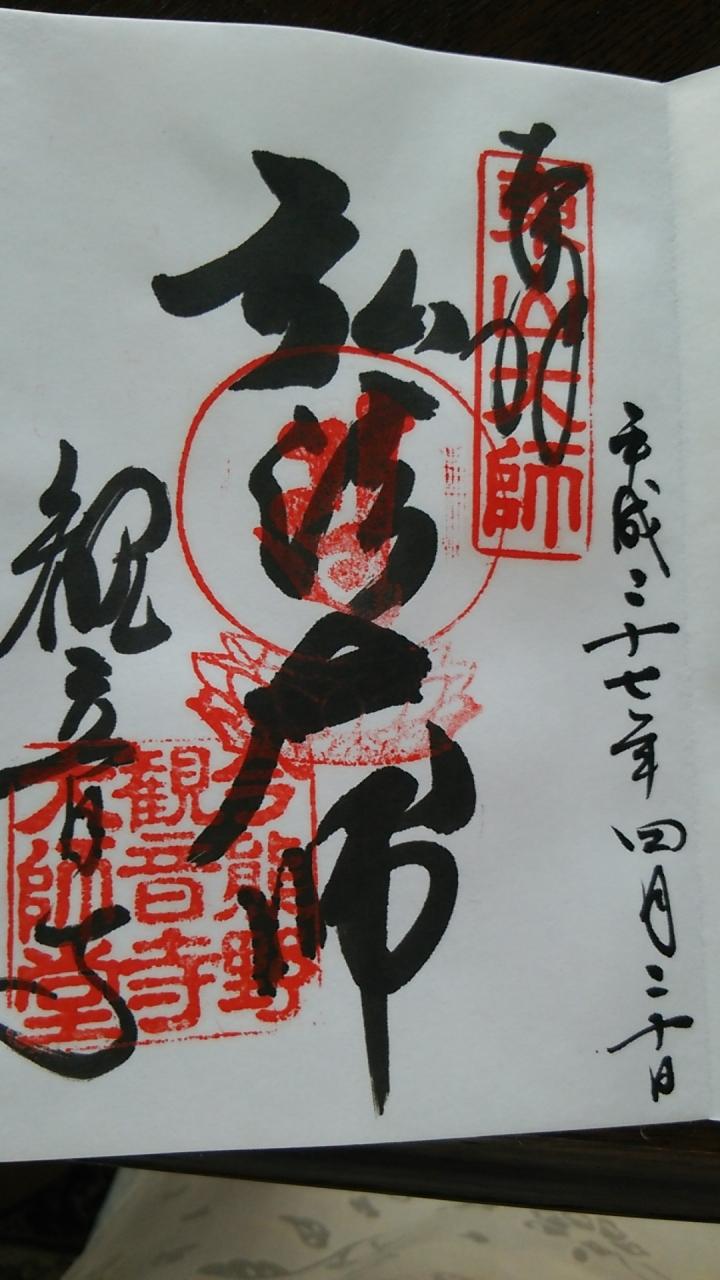 奉拝
東山大師
平成二十七年四月二十日
弘法大師
観音寺
今熊野
観音寺
大師堂